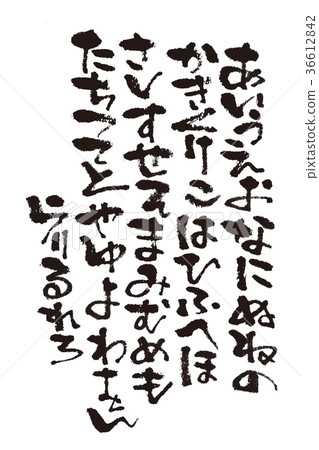 あいうえおなにぬねの
かきくけこはひふへほ
さしすせそまみむめも
たちつてとやゆよわをん
らりるれろ
36612842